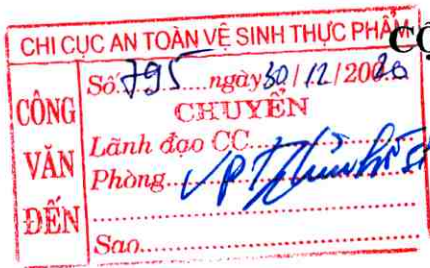 CHI CỤC AN TOÀN VỆ SINH THỰC PHẨM
CỘ
CÔNG
VĂN
ĐẾN
Số: 795 ngày 30/12/2020
CHUYỂN
Lãnh đạo CC
Phòng VP
Sao